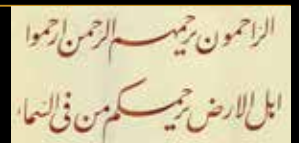 الراحمون يرحمهم الرحمن ارحموا
اهل الارض يرحمكم من في السماء